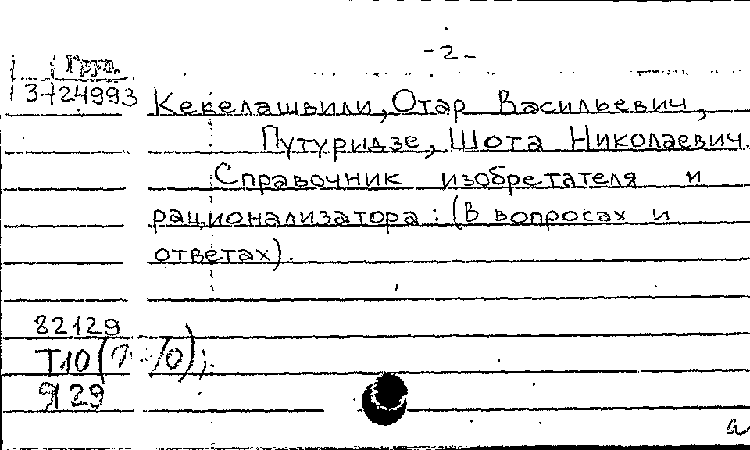 -2-
Груз.
3-24993
Кекелашвили, Отар Васильевич,
Путуридзе, Шота Николаевич.
Справочник изобретателя и
рационализатора: (В вопросах и
ответах).
82129
Т10
9 29